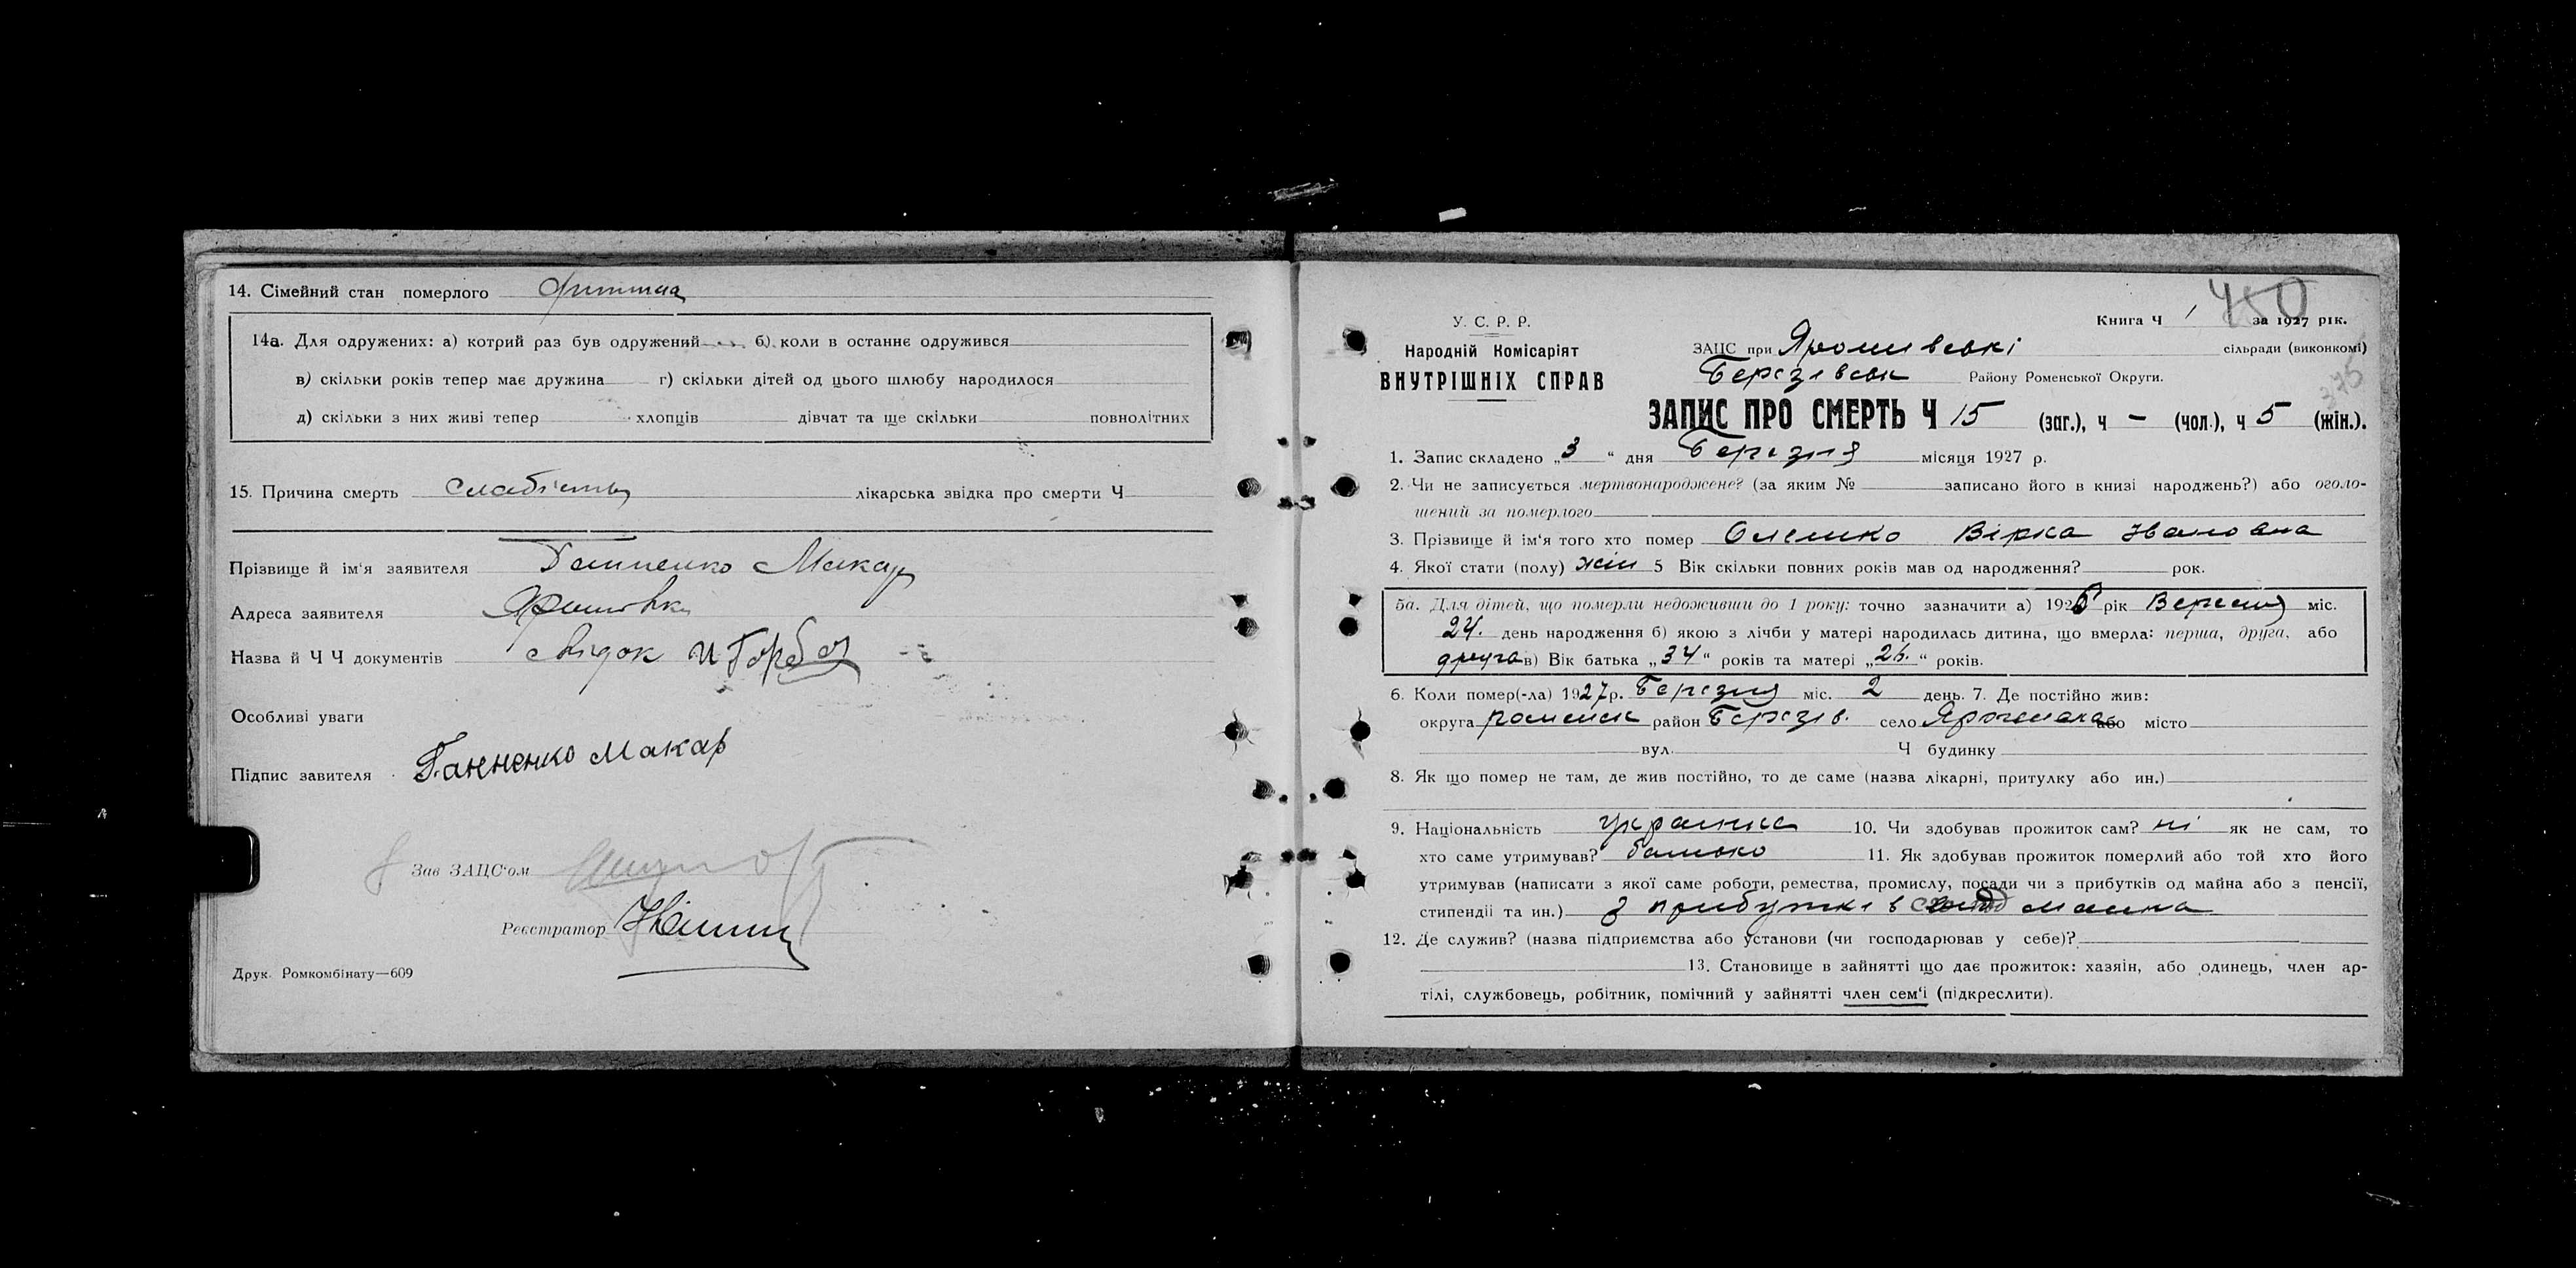 14. Сімейний стан померлого дитина
14а. Для одружених: а) котрий раз був одружений б) коли в останнє одружився
в) скільки років тепер має дружина г) скільки дітей од цього шлюбу народилося
д) скільки з них живі тепер хлопців дівчат та ще скільки повнолітних
15. Причина смерть слабість лікарська звідка про смерти Ч
Прізвище й ім'я заявителя Ганненко Макар
Адреса заявителя Ярошовка
Назва й Ч Ч документів свідок И Горбаь
Особливі уваги
Підпис завителя Ганненко Макар
Зав ЗАЦС'ом
Реєстратор
Друк. Ромкомбінату—609
450
У. С. Р. Р.
Книга Ч 1 за 1927 рік.
Народній Комісаріят
ВНУТРІШНІХ СПРАВ
ЗАЦС при Ярошивські сільради (виконкомі)
Березівськ Району Роменської Округи.
375
ЗАПИС ПРО СМЕРТЬ Ч 15 (заг.), ч – (чол.), ч 5 (жін.).
1. Запис складено „3“ дня Березня місяця 1927 р.
2. Чи не записується мертвонароджене? (за яким № записано його в книзі народжень?) або оголо-
шений за померлого
3. Прізвище й ім'я того хто помер Олешко Вірка Ивановна
4. Якої стати (полу) жін 5 Вік скільки повних років мав од народження? рок.
5а. Для дітей, що померли недоживши до 1 року: точно зазначити а) 1926 рік Вересня міс.
24. день народження б) якою з лічби у матері народилась дитина, що вмерла: перша, друга, або
друга в) Вік батька „34“ років та матері „26.“ років.
6. Коли помер(-ла) 1927р. Березня міс. 2 день. 7. Де постійно жив:
округа роменск район Березів. село Ярошовка або місто
вул. Ч будинку
8. Як що помер не там, де жив постійно, то де саме (назва лікарні, притулку або ин.)
9. Національність українка 10. Чи здобував прожиток сам? ні як не сам, то
хто саме утримував? батько 11. Як здобував прожиток померлий або той хто його
утримував (написати з якої саме роботи, ремества, промислу, посади чи з прибутків од майна або з пенсії,
стипендіі та ин.) з прибутків од маина
12. Де служив? (назва підприємства або установи (чи господарював у себе)?
13. Становище в зайнятті що дає прожиток: хазяін, або одинець, член ар-
тілі, службовець, робітник, помічний у зайнятті член сем'і (підкреслити).